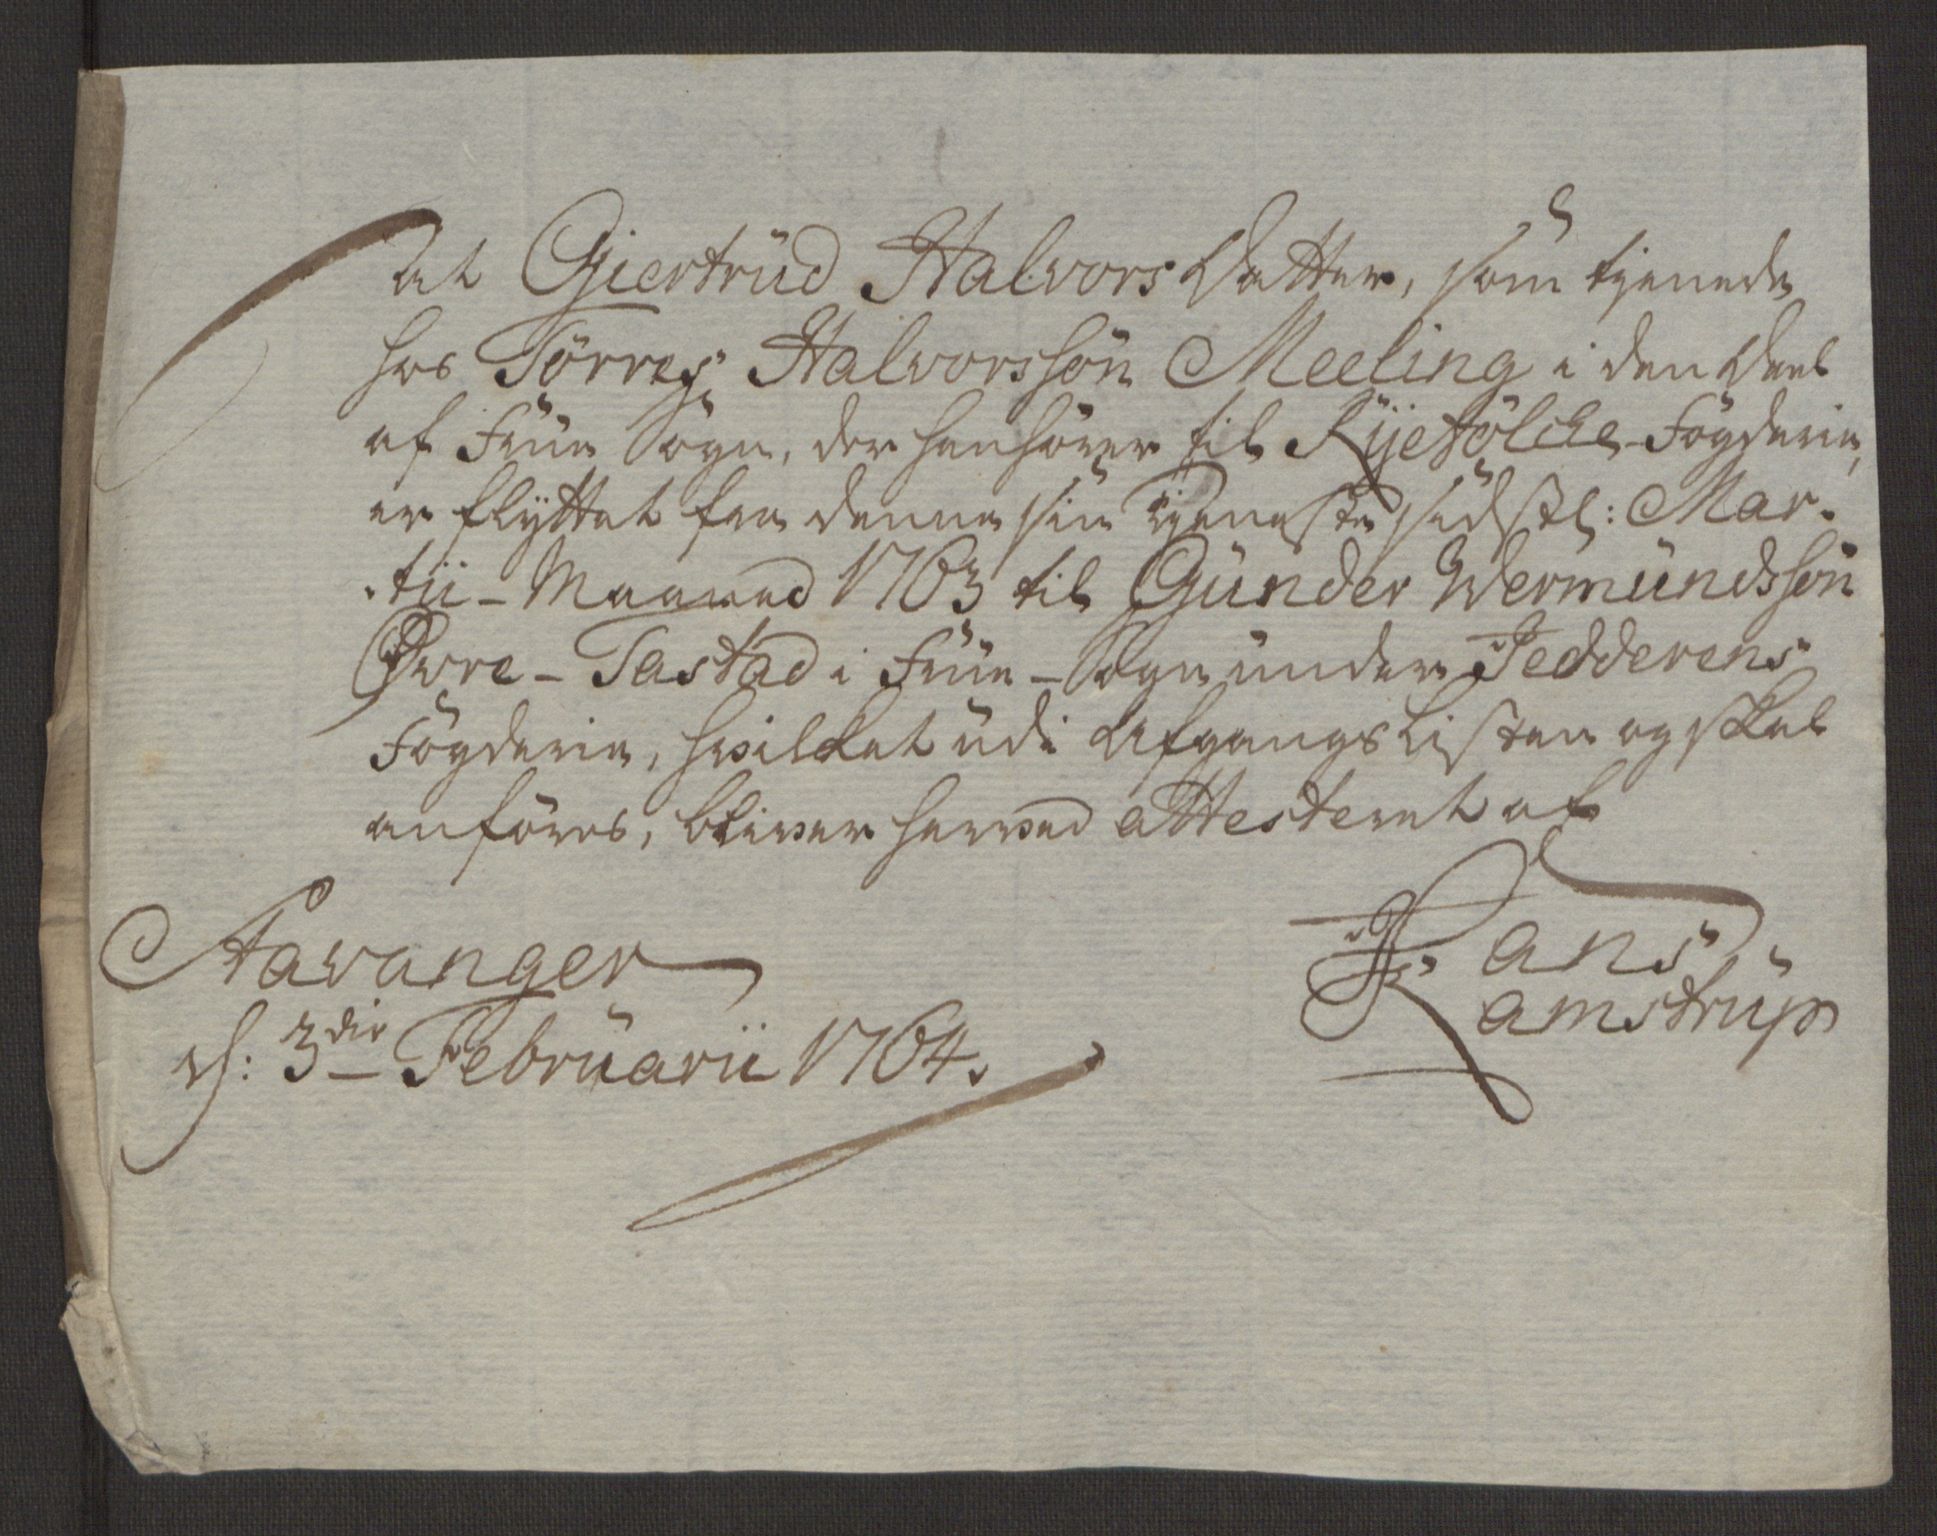 At Giertrüd Halvors Datter, som tjenede
hos Törres Halvorssön Meeling i den Deel
af Früe Sogn, der henhörer til Ryefölche-Fögderie,
er flyttet fra denne sin Tjeneste sidstl: Mar-
tii-Maaned 1763 til Günder Wermündssön
Øvre-Tastad i Früe-Sogn ünder Jedderens
Fögderie, hvilket üdi Afgangs Listen og skal
anföres, bliver herved attesteret af
Stavanger
d: 3die Februarii 1764.
Hans
Ramstrüp